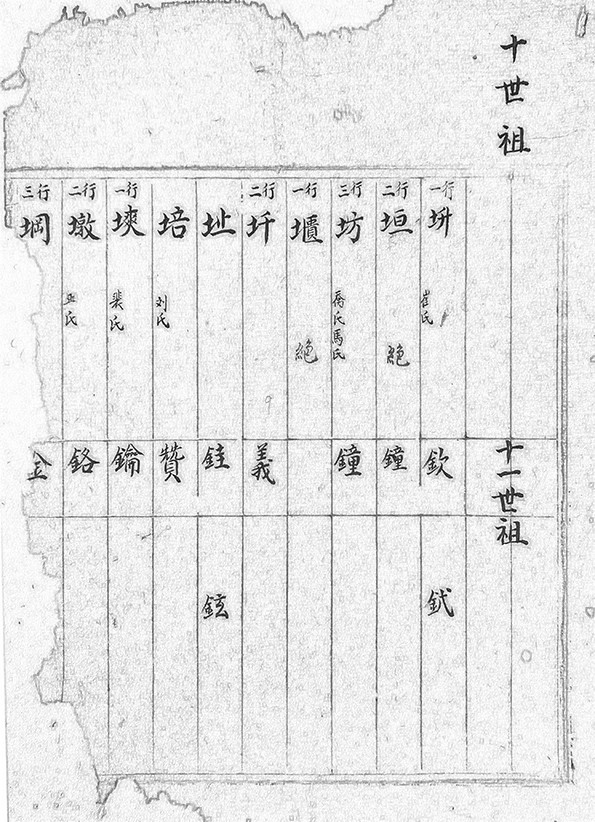 十世祖
一行 垪 崔氏
二行 垣 絕
三行 坊 馬氏
一行 壏 絕
二行 圲
址
培 刘氏
一行 塽 裴氏
二行 墩 氏
三行 堈
十一世祖
欽 鉽
鐘
鐘
義
銈 鉉
贊
鑰
鉻